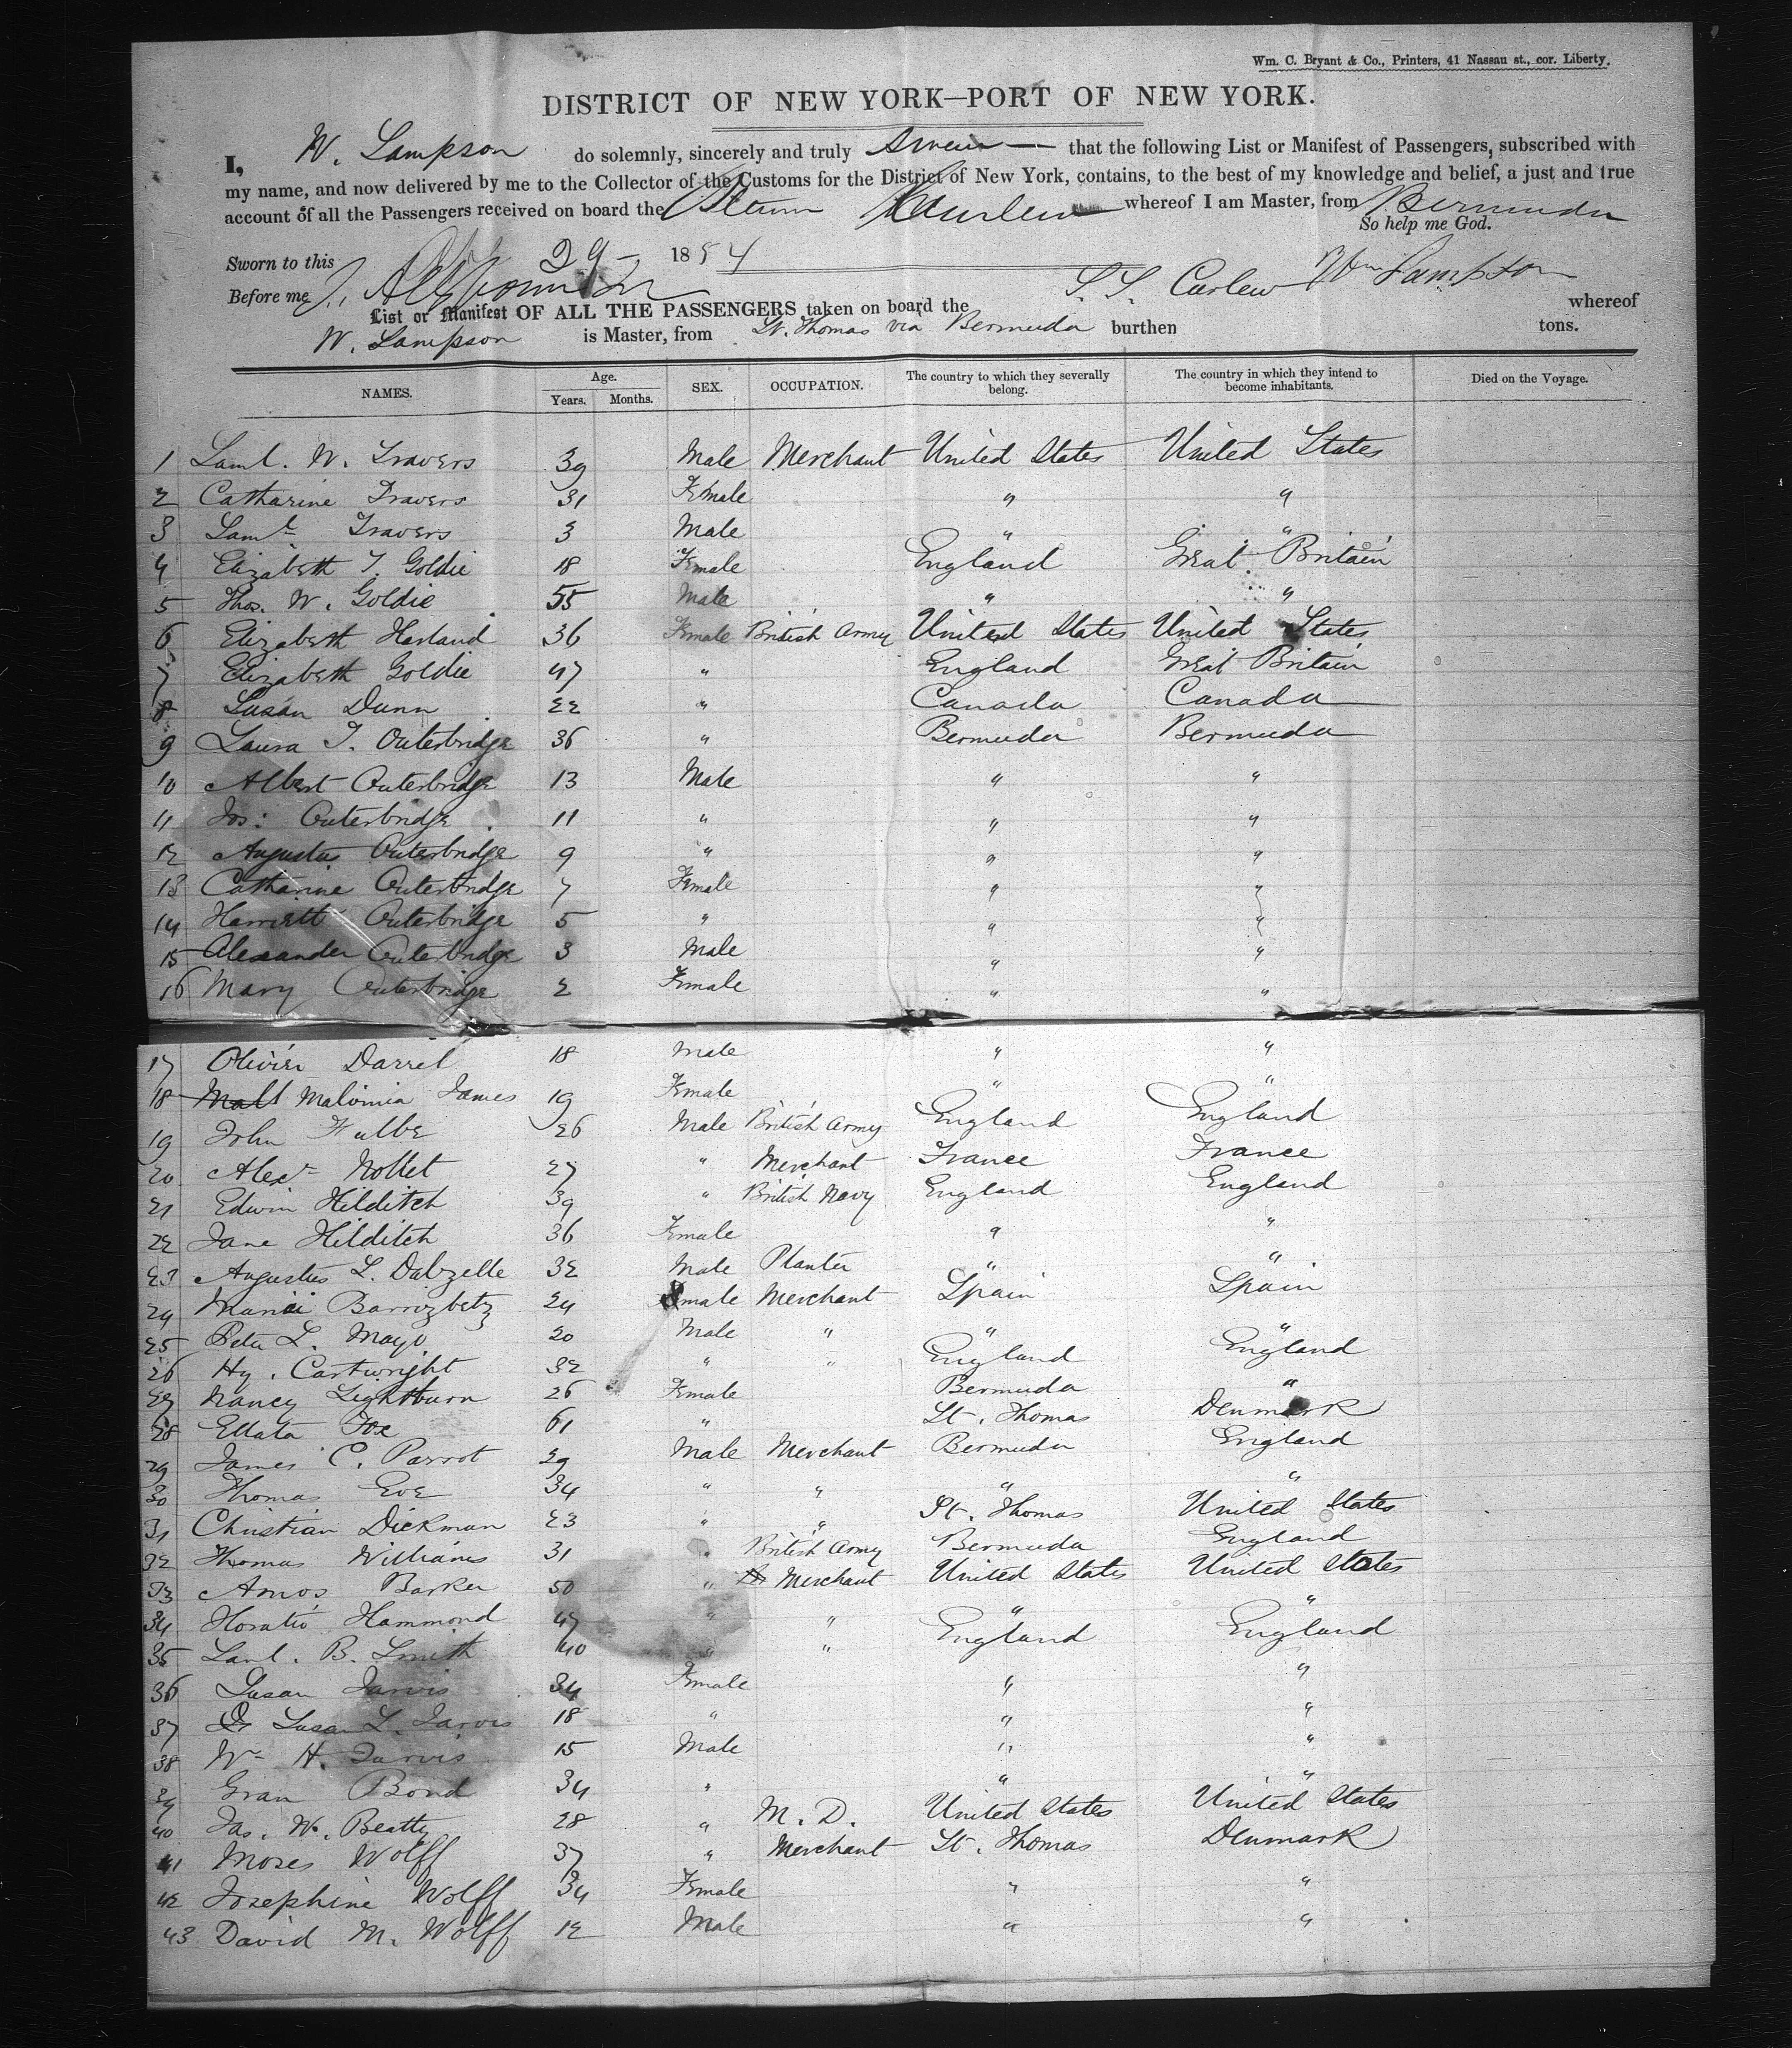 Wm. C. Bryant & Co., Printers, 41 Nassau st., cor. Liberty.
DISTRICT OF NEW YORK—PORT OF NEW YORK.
I, W. Sampson do solemnly, sincerely and truly Swear that the following List or Manifest of Passengers, subscribed with
my name, and now delivered by me to the Collector of the Customs for the District of New York, contains, to the best of my knowledge and belief, a just and true
account of all the Passengers received on board the Curlew whereof I am Master, from Bermuda
So help me God.
Sworn to this 29 1854
Before me Wm Sampson
List or Manifest OF ALL THE PASSENGERS taken on board the S.S. Curlew whereof
W. Sampson is Master, from St. Thomas via Bermuda burthen tons.
NAMES. Age. Years. Months. SEX. OCCUPATION. The country to which they severally belong. The country in which they intend to become inhabitants. Died on the Voyage.
1 Saml. W. Travers 39 Male Merchant United States United States
2 Catharine Travers 31 Female " "
3 Saml Travers 3 Male " "
4 Elizabeth T. Goldie 18 Female England Great Britain
5 Thos. W. Goldie 55 Male " "
6 Elizabeth Harland 36 Female British Army United States United States
7 Elizabeth Goldie 47 " England Great Britain
8 Susan Dunn 22 " Canada Canada
9 Laura T. Outerbridge 36 " Bermuda Bermuda
10 Albert Outerbridge 13 Male " "
11 Jos: Outerbridge 11 " " "
12 Augustus Outerbridge 9 " " "
13 Catharine Outerbridge 7 Female " "
14 Harriett Outerbridge 5 " " "
15 Alexander Outerbridge 3 Male " "
16 Mary Outerbridge 2 Female " "
17 Olivier Darrel 18 Male " "
18 Malvinia James 19 Female " "
19 John 26 Male British Army England England
20 Alexr Nollet 27 " Merchant France France
21 Edwin Hilditch 39 " British Navy England England
22 Jane Hilditch 36 Female " "
23 Augustus L. Dalzelle 32 Male Planter " "
24 24 Female Merchant Spain Spain
25 Peter L. Mayo 20 Male " " "
26 Hy. Cartwright 32 " " England England
27 Nancy Lightburn 26 Female Bermuda "
28 Fox 61 " St. Thomas Denmark
29 James C. Parrot 29 Male Merchant Bermuda England
30 Thomas Eve 34 " " " "
31 Christian Dickman 23 " " St. Thomas United States
32 Thomas Williams 31 " British Army Bermuda England
33 Amos Barker 50 " Merchant United States United States
34 Horatio Hammond 47 " " " "
35 Saml. B. Smith 40 " " England England
36 Susan Jarvis 34 Female " "
37 Susan L. Jarvis 18 " " "
38 Wm H. Jarvis 15 Male " "
39 Bond 34 " " "
40 Jas. W. Beatty 28 " M. D. United States United States
41 Moses Wolff 37 " Merchant St. Thomas Denmark
42 Josephine Wolff 34 Female " "
43 David M. Wolff 12 Male " "